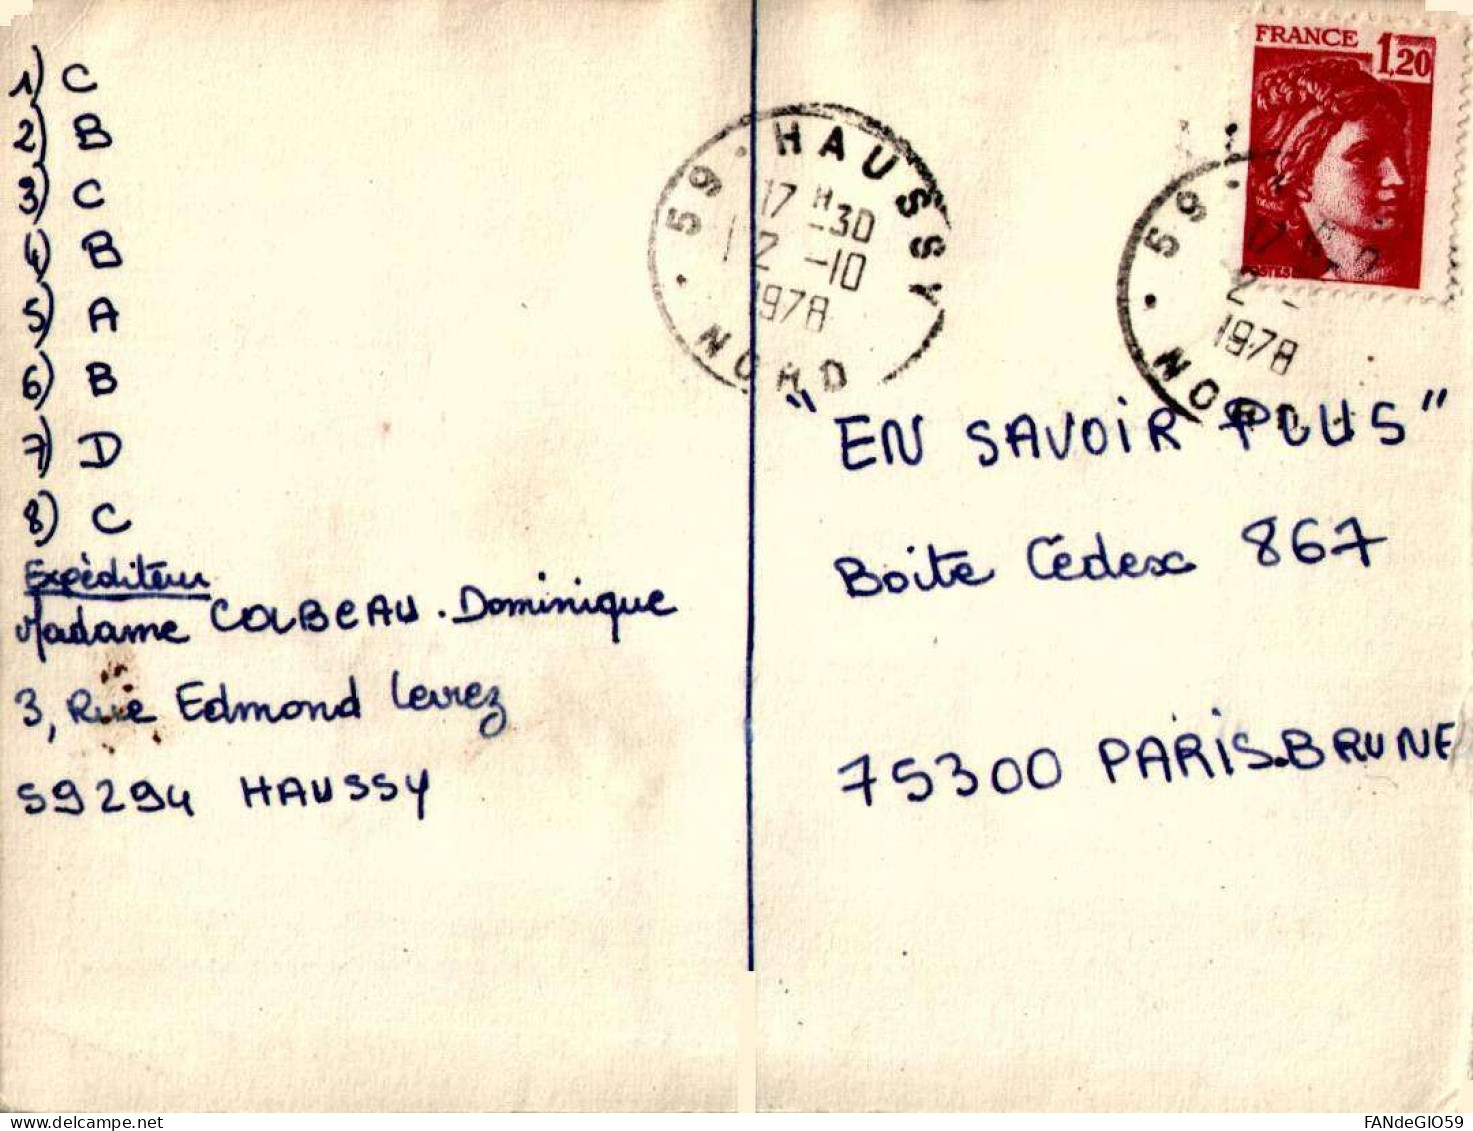 1) C
2) B
3) C
4) B
5) A
6) B
7) D
8) C
Expéditeur
Madame COLBEAU. Dominique
3, Rue Edmond Levez
59294 HAUSSY
59 · HAUSSY
17 H30
2 -10
1978
NORD
FRANCE 1,20
POSTES
59
17 H30
2 -
1978
NORD
"EN SAVOIR PLUS"
Boite Cédex 867
75300 PARIS.BRUNE
FANdeGIO59